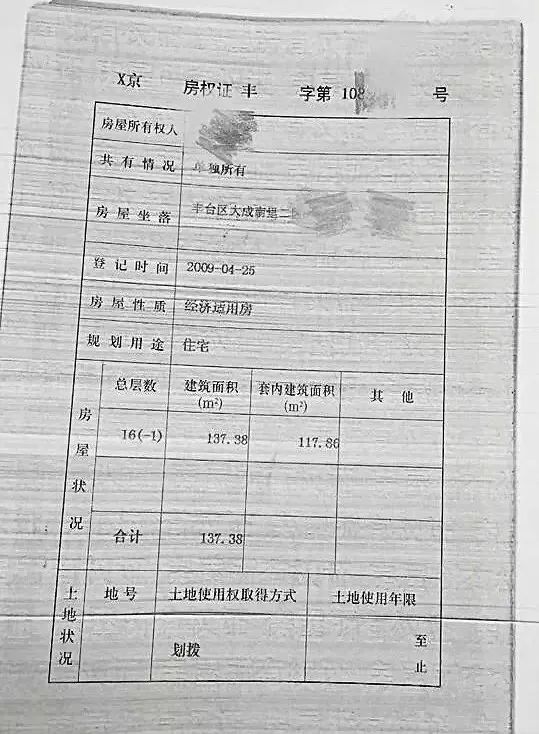 X京 房权证 丰 字第 108 号
房屋所有权人
共有情况 单独所有
房屋坐落 丰台区大成南里二
登记时间 2009-04-25
房屋性质 经济适用房
规划用途 住宅
房屋状况 总层数 建筑面积(m²) 套内建筑面积(m²) 其他
16(-1) 137.38 117.86
合计 137.38
土地状况 地号 土地使用权取得方式 土地使用年限
划拨 至
止